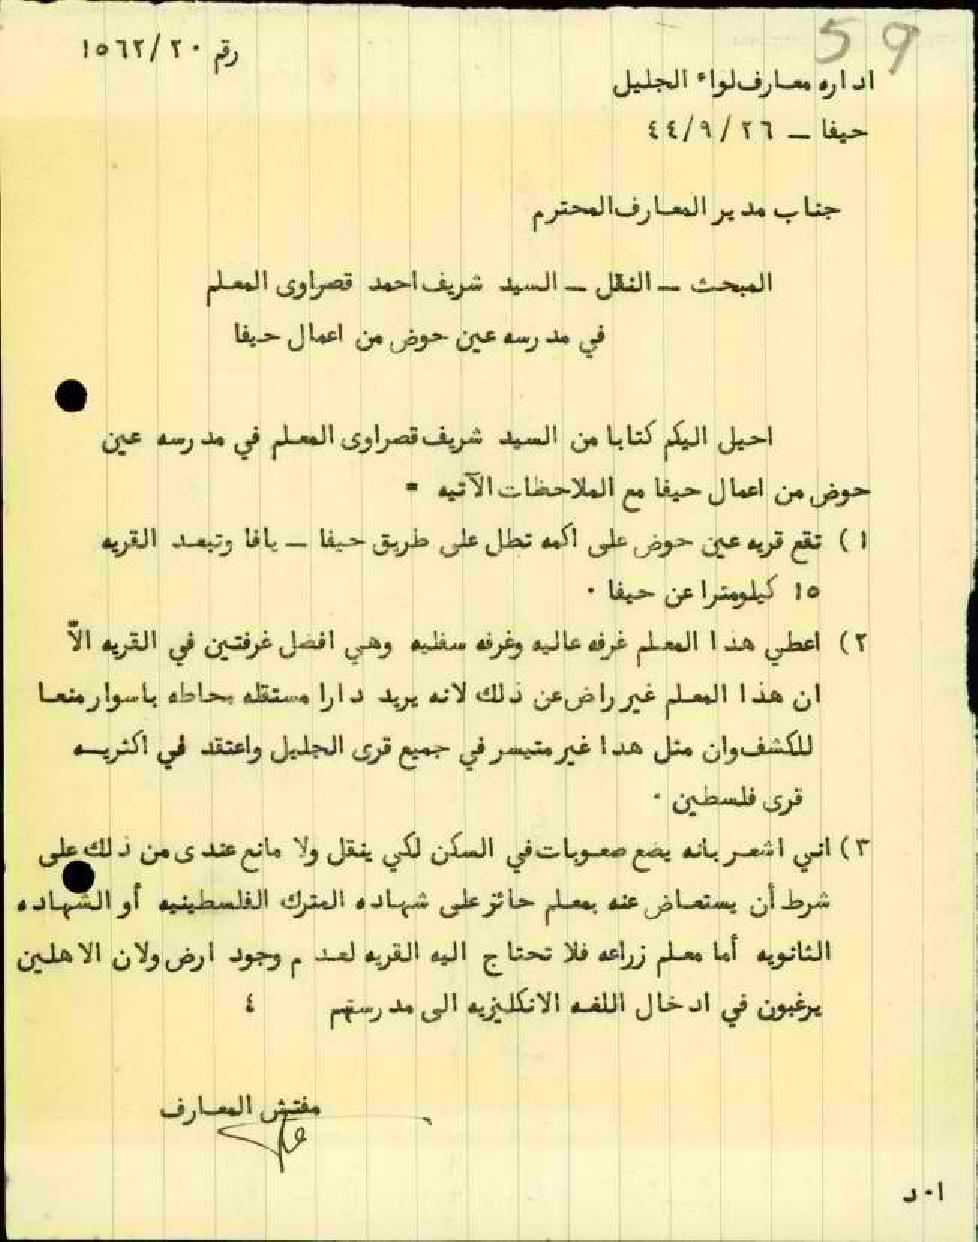 59
رقم ١٥٦٢/٢٠
اداره معارف لواء الجليل
حيفا — ٤٤/٩/٢٦
جناب مدير المعارف المحترم
المبحث — النقل — السيد شريف احمد قصراوى المعلم
في مدرسه عين حوض من اعمال حيفا
احيل اليكم كتابا من السيد شريف قصراوى المعلم في مدرسه عين
حوض من اعمال حيفا مع الملاحظات الآتيه =
١) تقع قريه عين حوض على اكمه تطل على طريق حيفا — يافا وتبعد القريه
١٥ كيلومترا عن حيفا ٠
٢) اعطي هذا المعلم غرفه عاليه وغرفه سفليه وهي افضل غرفتين في القريه الاّ
ان هذا المعلم غير راض عن ذلك لانه يريد دارا مستقله محاطه باسوار منعا
للكشف وان مثل هدا غير متيسر في جميع قرى الجليل واعتقد في اكثريه
قرى فلسطين ٠
٣) انني اشعر بانه يضع صعوبات في السكن لكي ينقل ولا مانع عندى من ذلك على
شرط أن يستعاض عنه بمعلم حائز على شهاده المترك الفلسطينيه أو الشهاده
الثانويه أما معلم زراعه فلا تحتاج اليه القريه لعدم وجود ارض ولان الاهلين
يرغبون في ادخال اللغه الانكليزيه الى مدرستهم ٤
مفتش المعارف
ا٠د